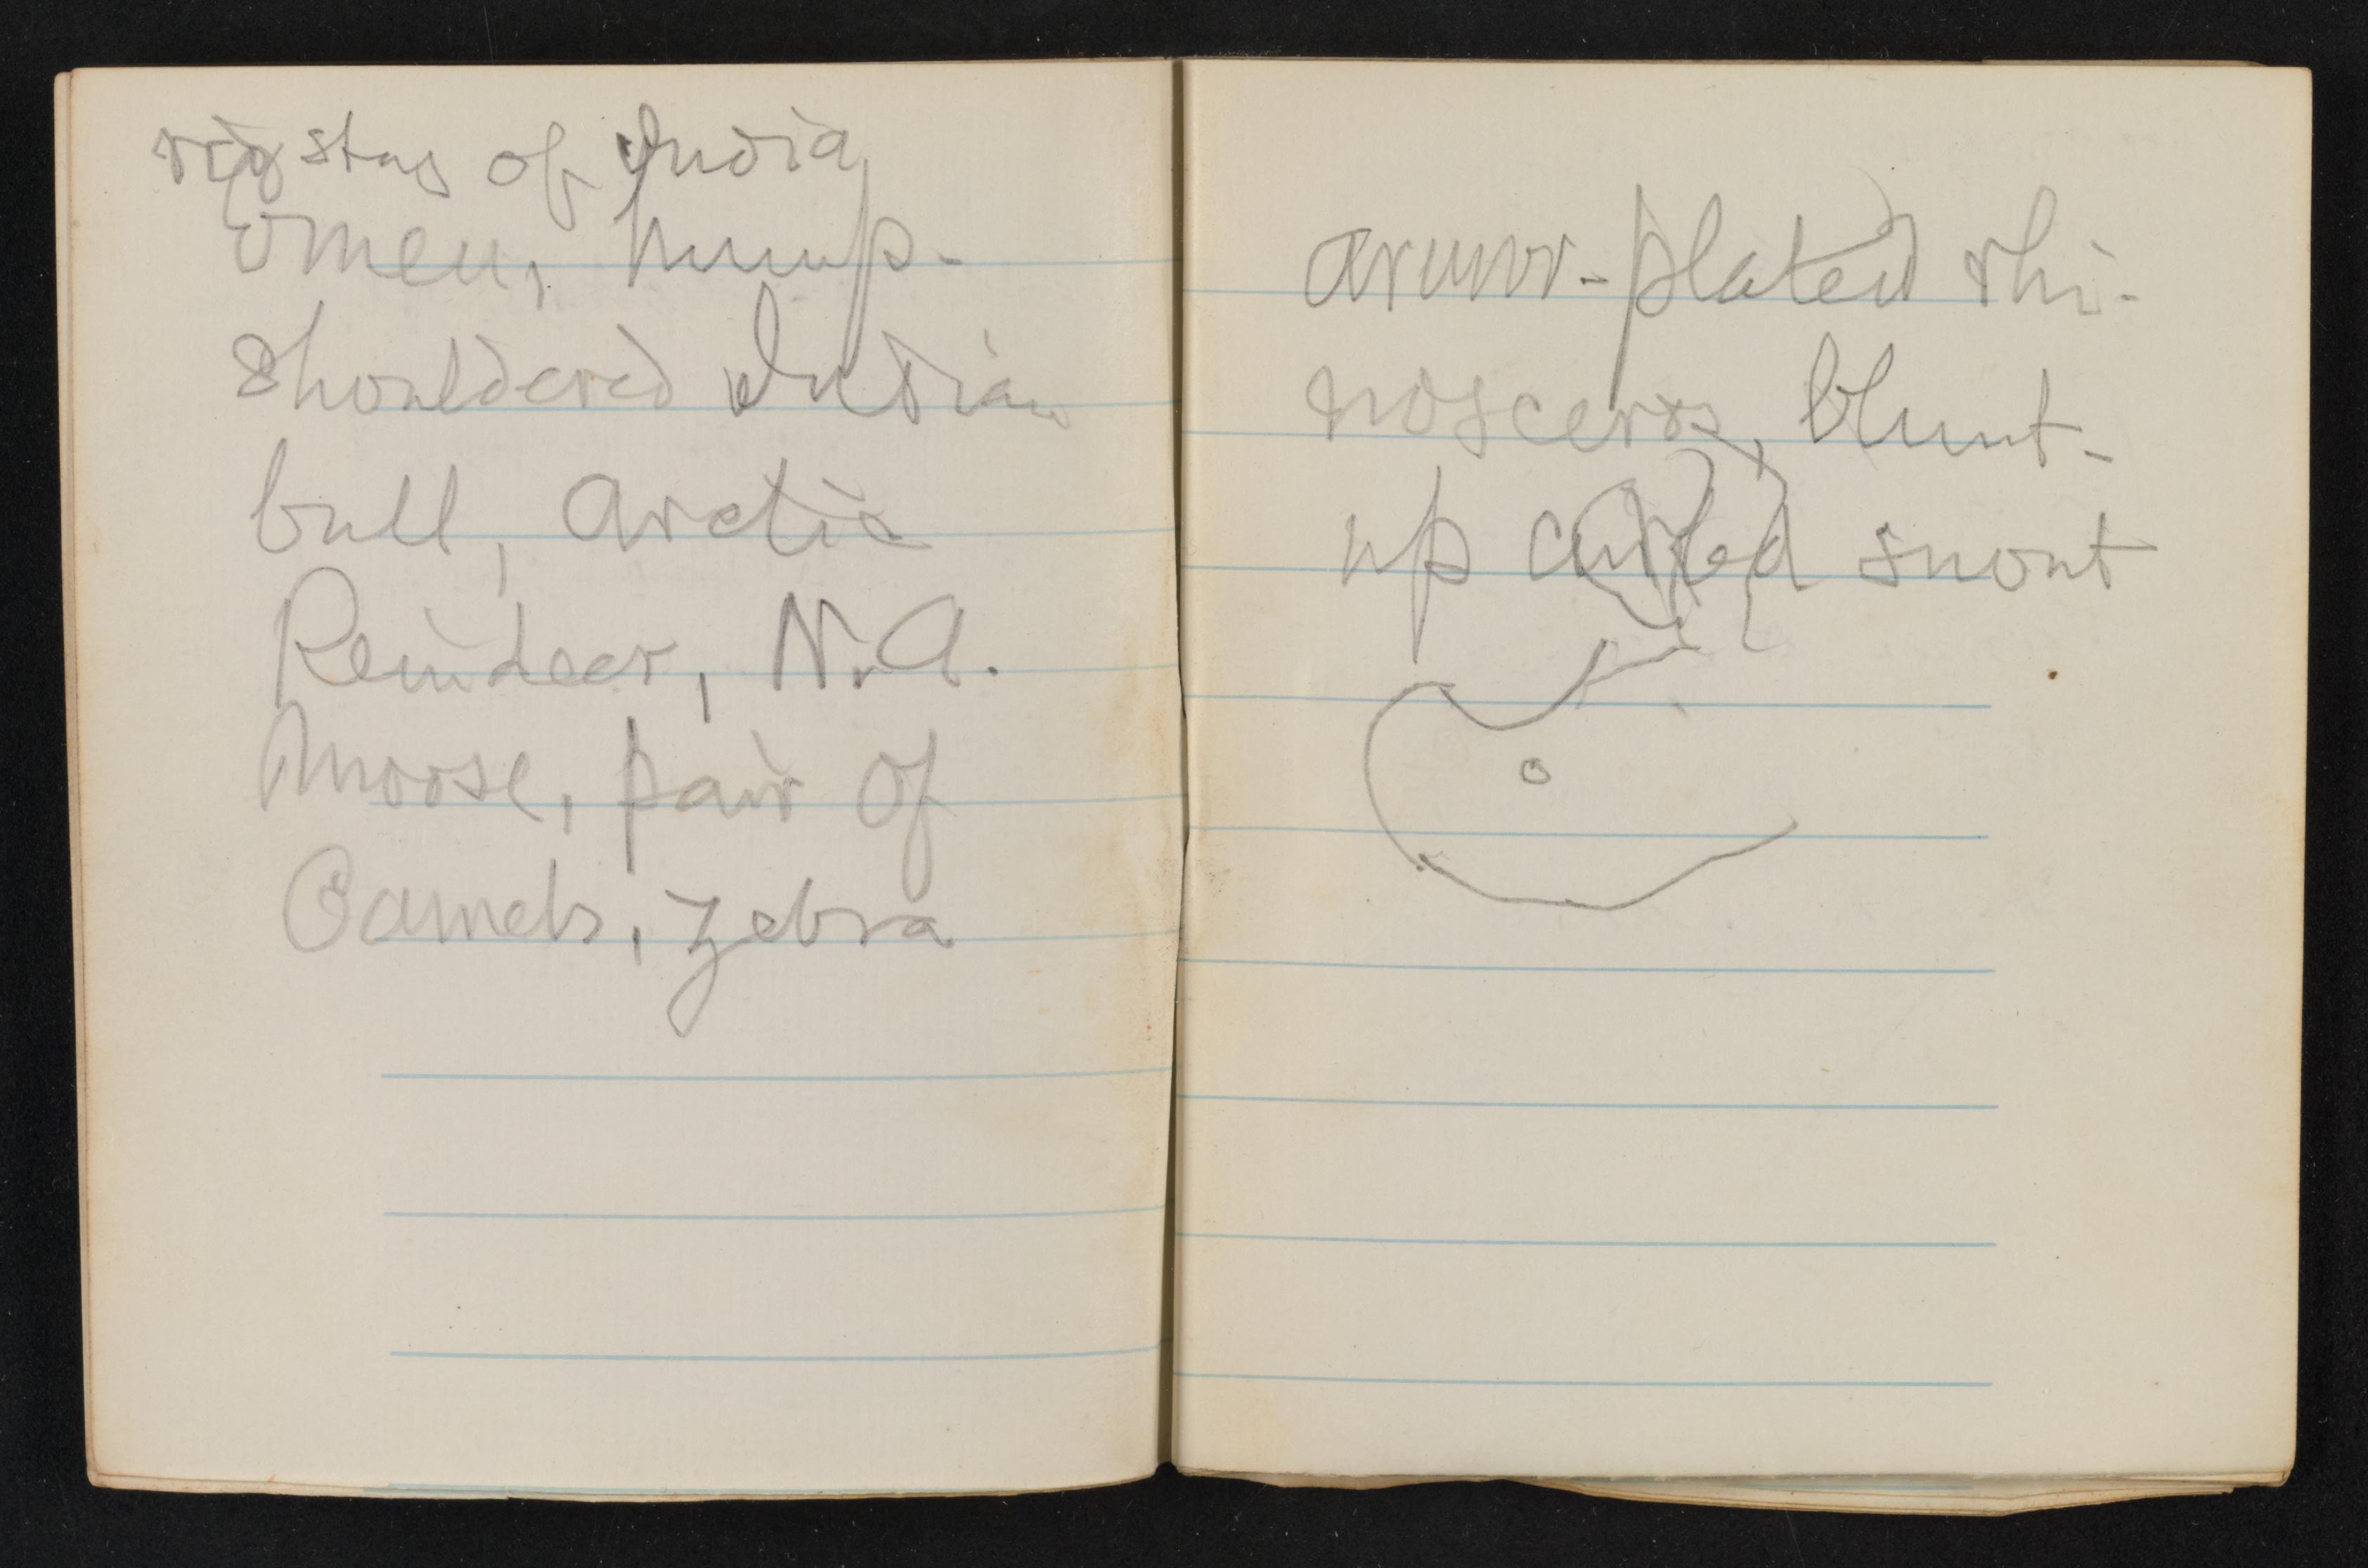 stag of India
women, hump-
shouldered Indian
bull, Arctic
Reindeer, N.A.
Moose, pair of
Camels, zebra
armor-plated rhi-
nosceros, blunt-
up curled snout